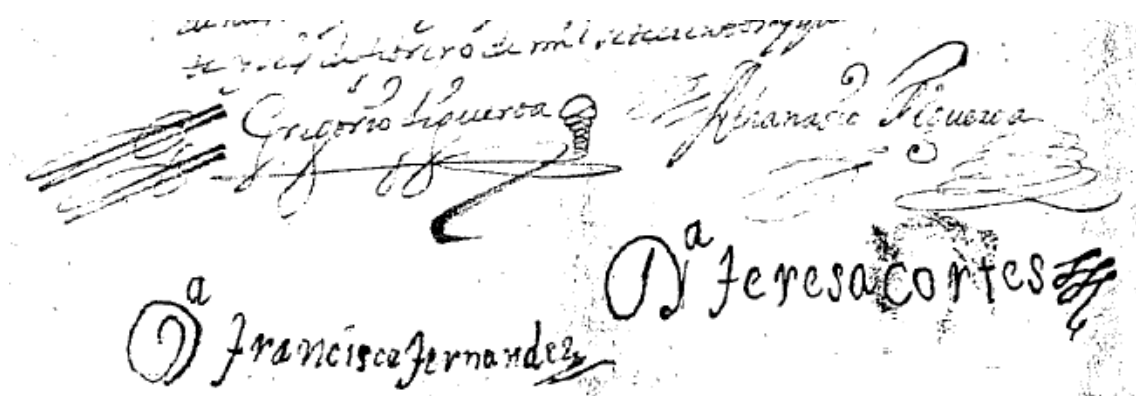 de mil setecientos
Gregorio figueroa Athanacio Figueroa
Dª Teresa cortes
Dª francisca fernandez